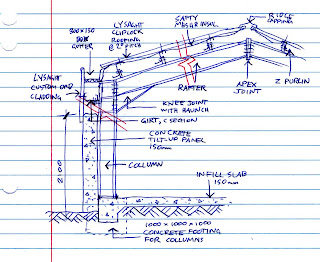 300x150
BOX
GUTTER
LYSAGHT
KLIPLOK
ROOFING
@ 2° PITCH
SAFETY
MESH & INSUL.
RIDGE
CAPPING
LYSAGHT
CUSTOM ORB
CLADDING
RAFTER
APEX
JOINT
Z PURLIN
KNEE JOINT
WITH HAUNCH
GIRT, C SECTION
CONCRETE
TILT-UP PANEL
150mm
2100
COLUMN
INFILL SLAB
150mm
1000 x 1000 x 1000
CONCRETE FOOTING
FOR COLUMNS